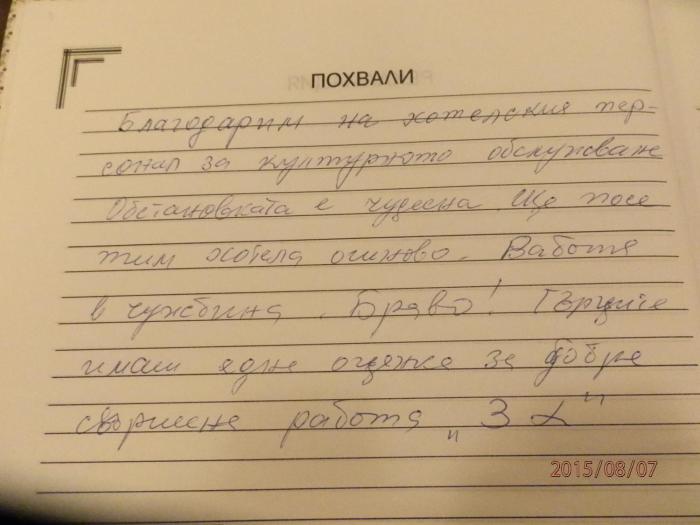 ПОХВАЛИ
Благодарим на хотелския пер-
сонал за културното обслужване
Обстановката е чудесна. Ще посе
тим хотела отново. Работя
в чужбина. Браво! Гърците
имат една оценка за добре
свършена работа „ 3 α "
2015/08/07